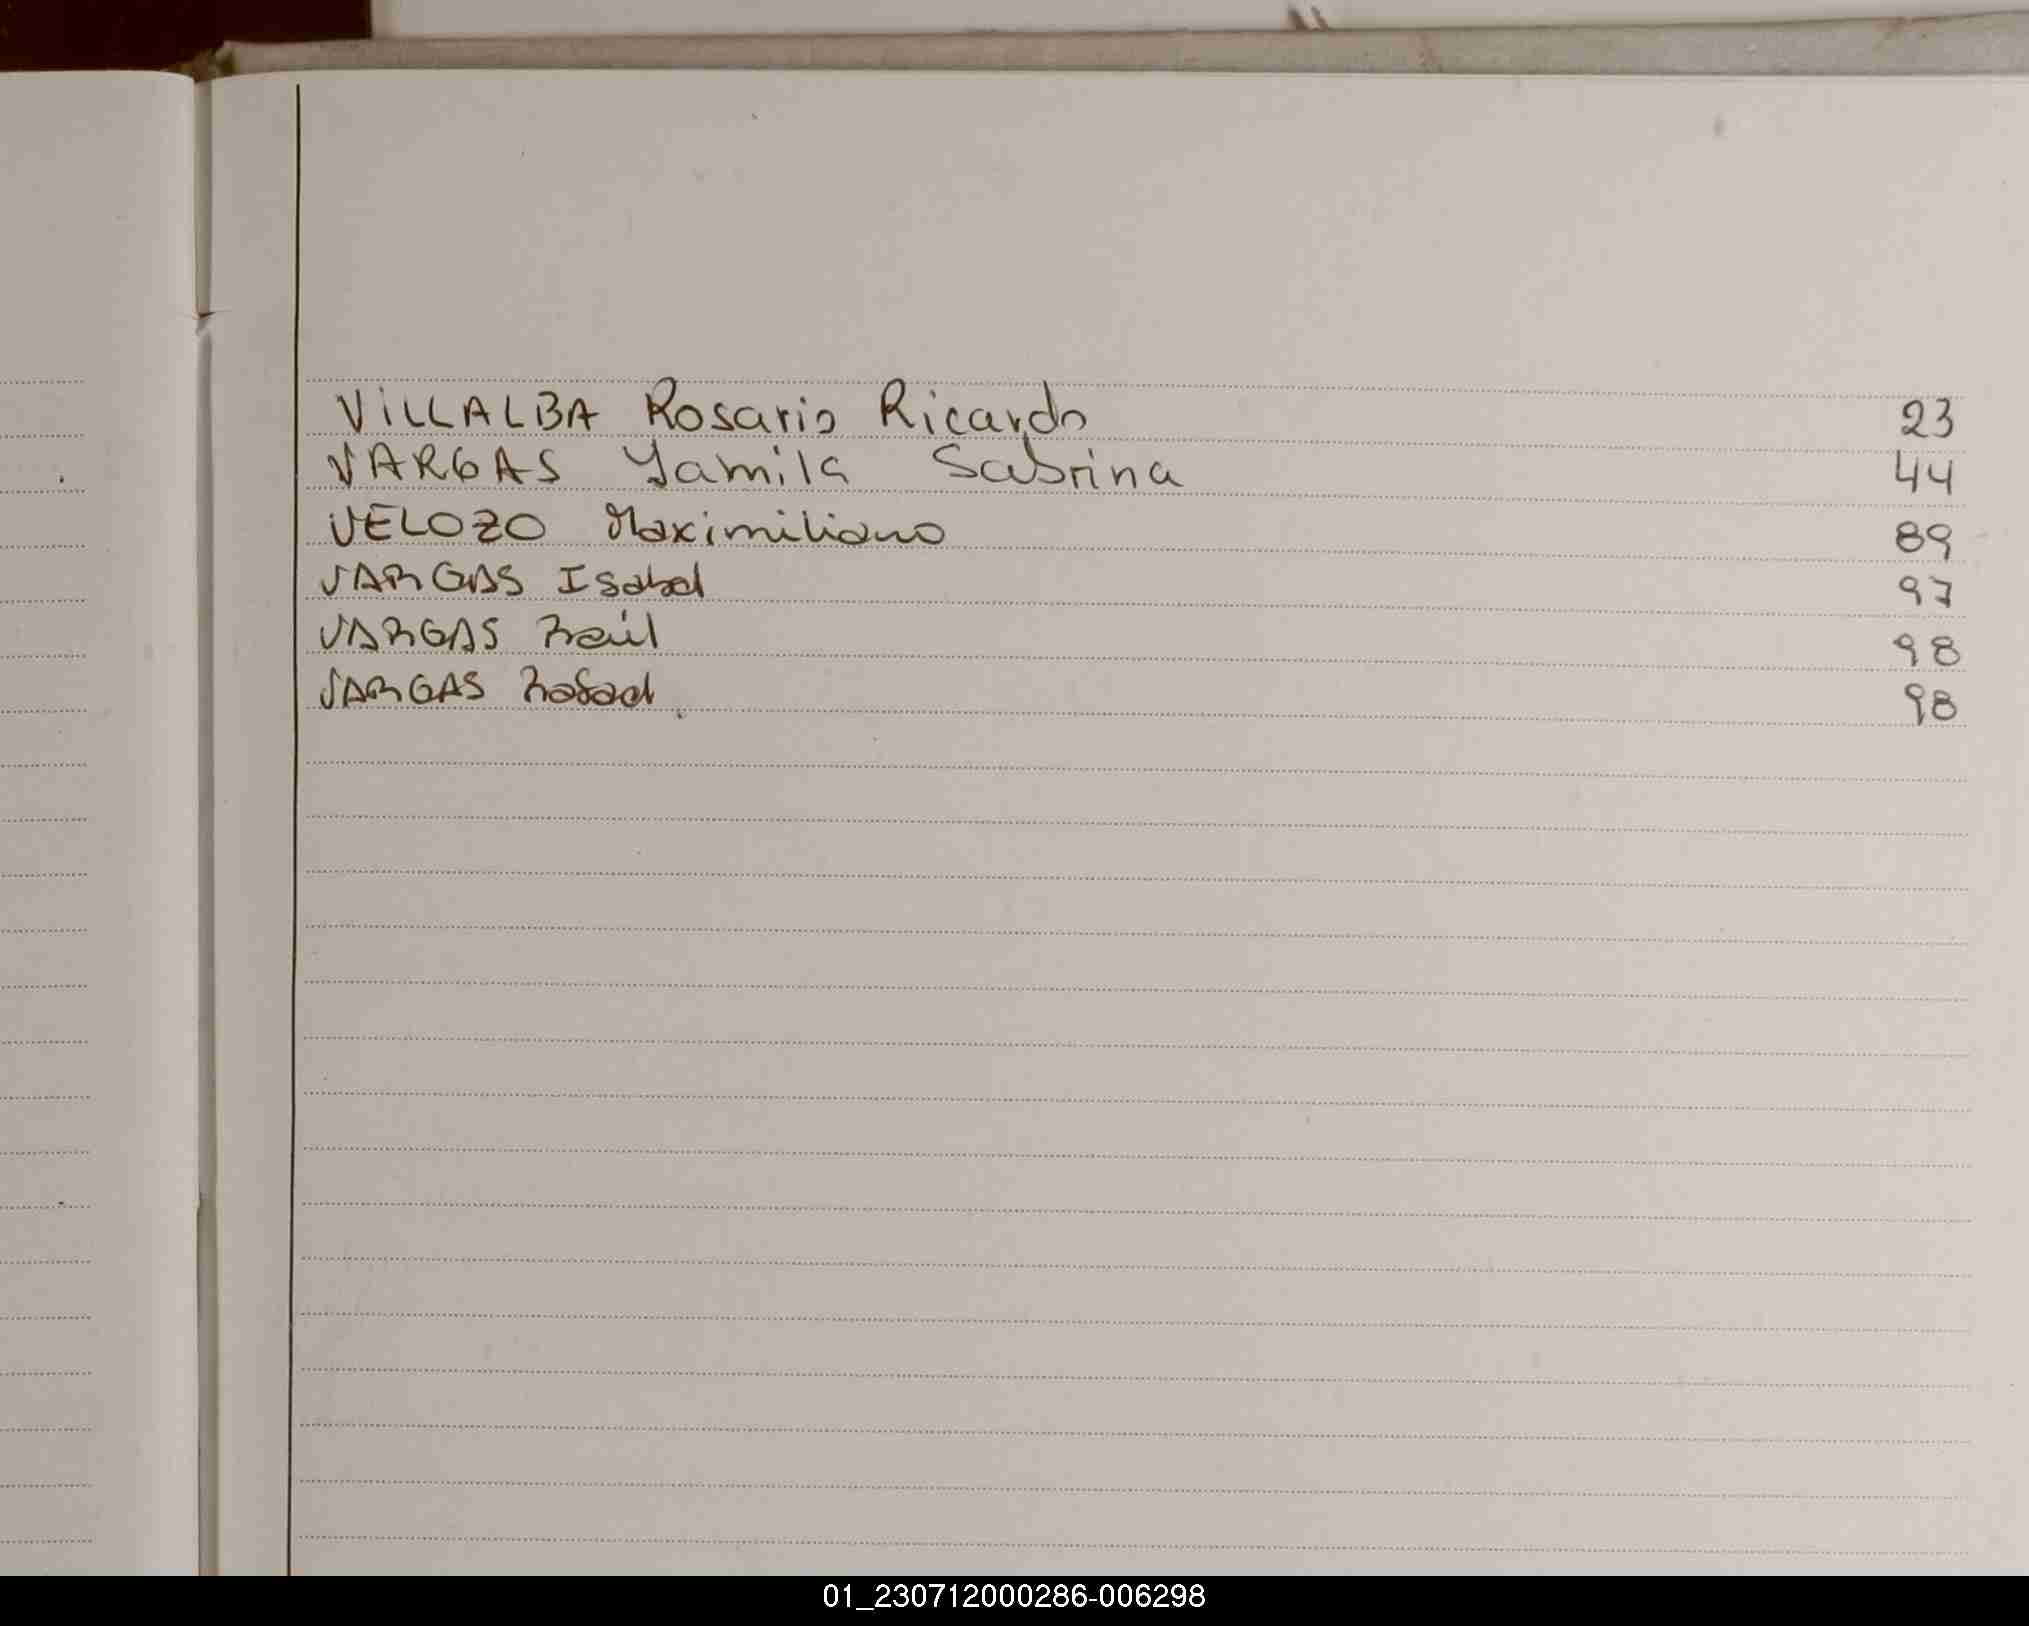 VILLALBA Rosario Ricardo 23
VARGAS Yamila Sabrina 44
VELOZO Maximiliano 89
VARGAS Isabel 97
VARGAS Raúl 98
VARGAS Rafael 98
01_230712000286-006298